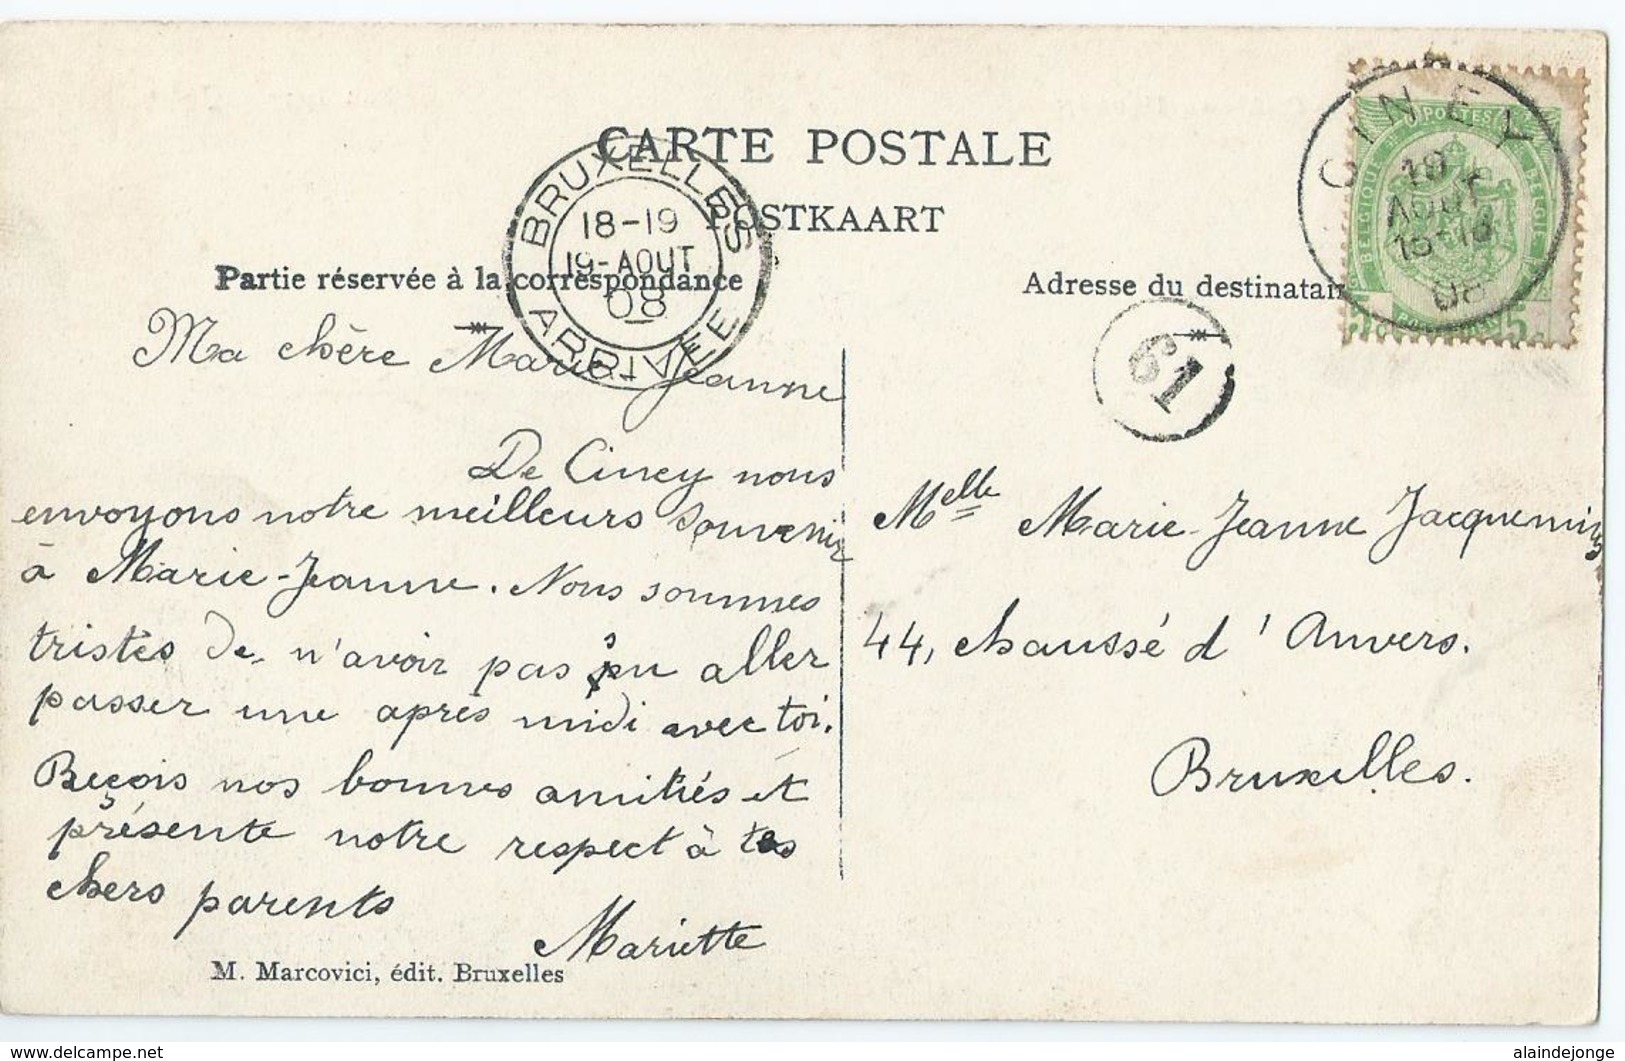 CARTE POSTALE
POSTKAART
Partie réservée à la correspondance
Adresse du destinatair
BRUXELLES
18-19
19-AOUT
08
ARRIVÉE
CINEY
19
AOUT
08
POSTES
BELGIQUE
BELGIE
61
Ma chère Marie-Jeanne
De Ciney nous
envoyons notre meilleurs souvenir
à Marie-Jeanne. Nous sommes
tristes de n'avoir pas pu aller
passer une après midi avec toi.
Reçois nos bonnes amitiés et
présente notre respect à tes
chers parents
Mariette
M. Marcovici, édit. Bruxelles
Melle Marie-Jeanne Jacquemin
44, chaussé d'Anvers.
Bruxelles.
alaindejonge
www.delcampe.net